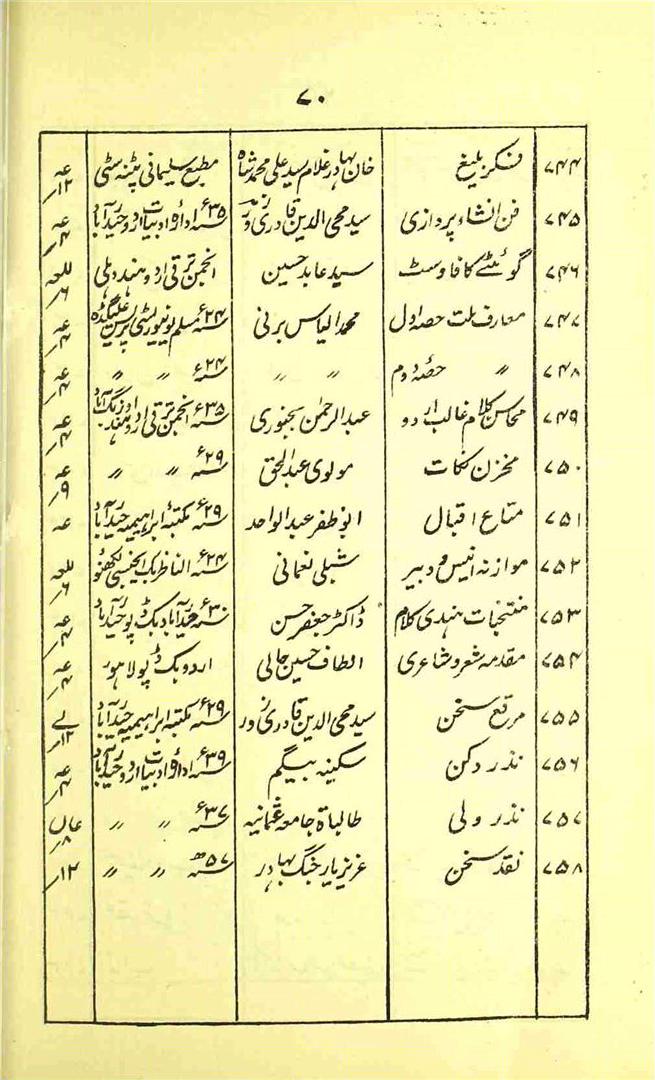 ۷۰
۷۴۴ فکر بلیغ خان بہادر غلام سید علی محمد شاہ مطبع سلیمانی پٹنہ سٹی ۱۲؍
۷۴۵ فن انشاء پردازی سید محی الدین قادری زور ۳۵ء ادارۂ ادبیات اردو حیدرآباد ۴؍
۷۴۶ گوئٹے کا فاوسٹ سید عابد حسین انجمن ترقی اردو ہند دہلی ۶؍
۷۴۷ معارف ملت حصہ اول محمد الیاس برنی ۲۴ء مسلم یونیورسٹی پریس علیگڈہ ۴؍
۷۴۸ // حصہ دوم // // ۲۴ء // // ۴؍
۷۴۹ محاسن کلام غالب اردو عبدالرحمٰن بجنوری ۳۵ء انجمن ترقی اردو ہند اورنگ آباد ۴؍
۷۵۰ مخزن نکات مولوی عبدالحق ۲۹ء // // ۹؍
۷۵۱ متاع اقبال ابو ظفر عبدالواحد ۲۹ء مکتبۂ ابراہیمیہ حیدرآباد عہ
۷۵۲ موازنہ انیس و دبیر شبلی نعمانی ۲۴ء الناظر بک ایجنسی لکھنؤ ۶؍
۷۵۳ منتخبات ہندی کلام ڈاکٹر جعفر حسن ۳۰ء حیدرآباد بک ڈپو حیدرآباد ۴؍
۷۵۴ مقدمہ شعر و شاعری الطاف حسین حالی اردو بک ڈپو لاہور ۴؍
۷۵۵ مرقع سخن سید محی الدین قادری زور ۲۹ء مکتبۂ ابراہیمیہ حیدرآباد ۱۲؍
۷۵۶ نذر دکن سکینہ بیگم ۳۹ء ادارۂ ادبیات اردو حیدرآباد ۴؍
۷۵۷ نذر ولی طالبات جامعہ عثمانیہ ۳۷ء // // ۸؍
۷۵۸ نقد سخن عزیز یار جنگ بہادر ۵۷ھ // // ۱۲؍